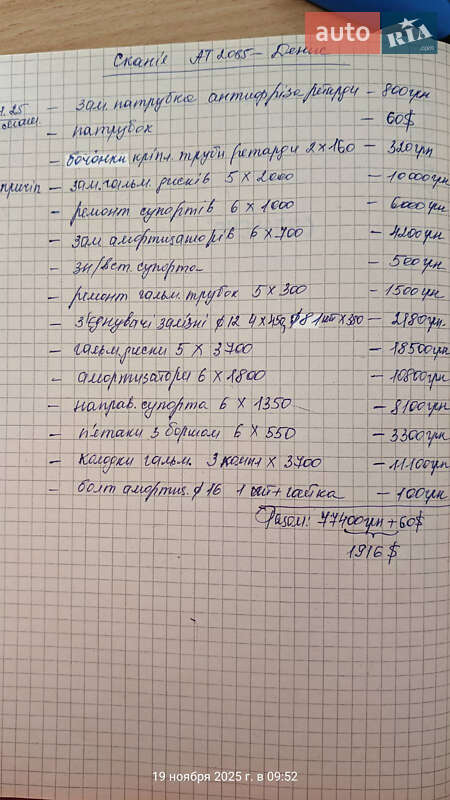 auto RIA .com
Сканія АТ 2085 - Денис
- зам. патрубка антифріза ретарди - 800грн
- патрубок - 60$
- бочонки кріпл. труби ретарди 2 х 160 - 320грн
причіп - зам. гальм. дисків 5 х 2000 - 10000грн
- ремонт супортів 6 х 1000 - 6000грн
- зам амортизаторів 6 х 700 - 4200грн
- зн/вст. супорта - 500грн
- ремонт гальм. трубок 5 х 300 - 1500грн
- з'єднувачі залізні ø 12 4 х 450, ø 8 1 шт х 350 - 2180грн.
- гальм. диски 5 х 3700 - 18500грн
- амортизатори 6 х 1800 - 10800грн
- направ. супорта 6 х 1350 - 8100грн
- п'етаки з боршом 6 х 550 - 3300грн
- колодки гальм. 3 компл х 3700 - 11100грн
- болт амортиз. ø 16 1 шт + гайка - 100грн
Разом: 77400грн + 60$
1916 $
19 ноября 2025 г. в 09:52